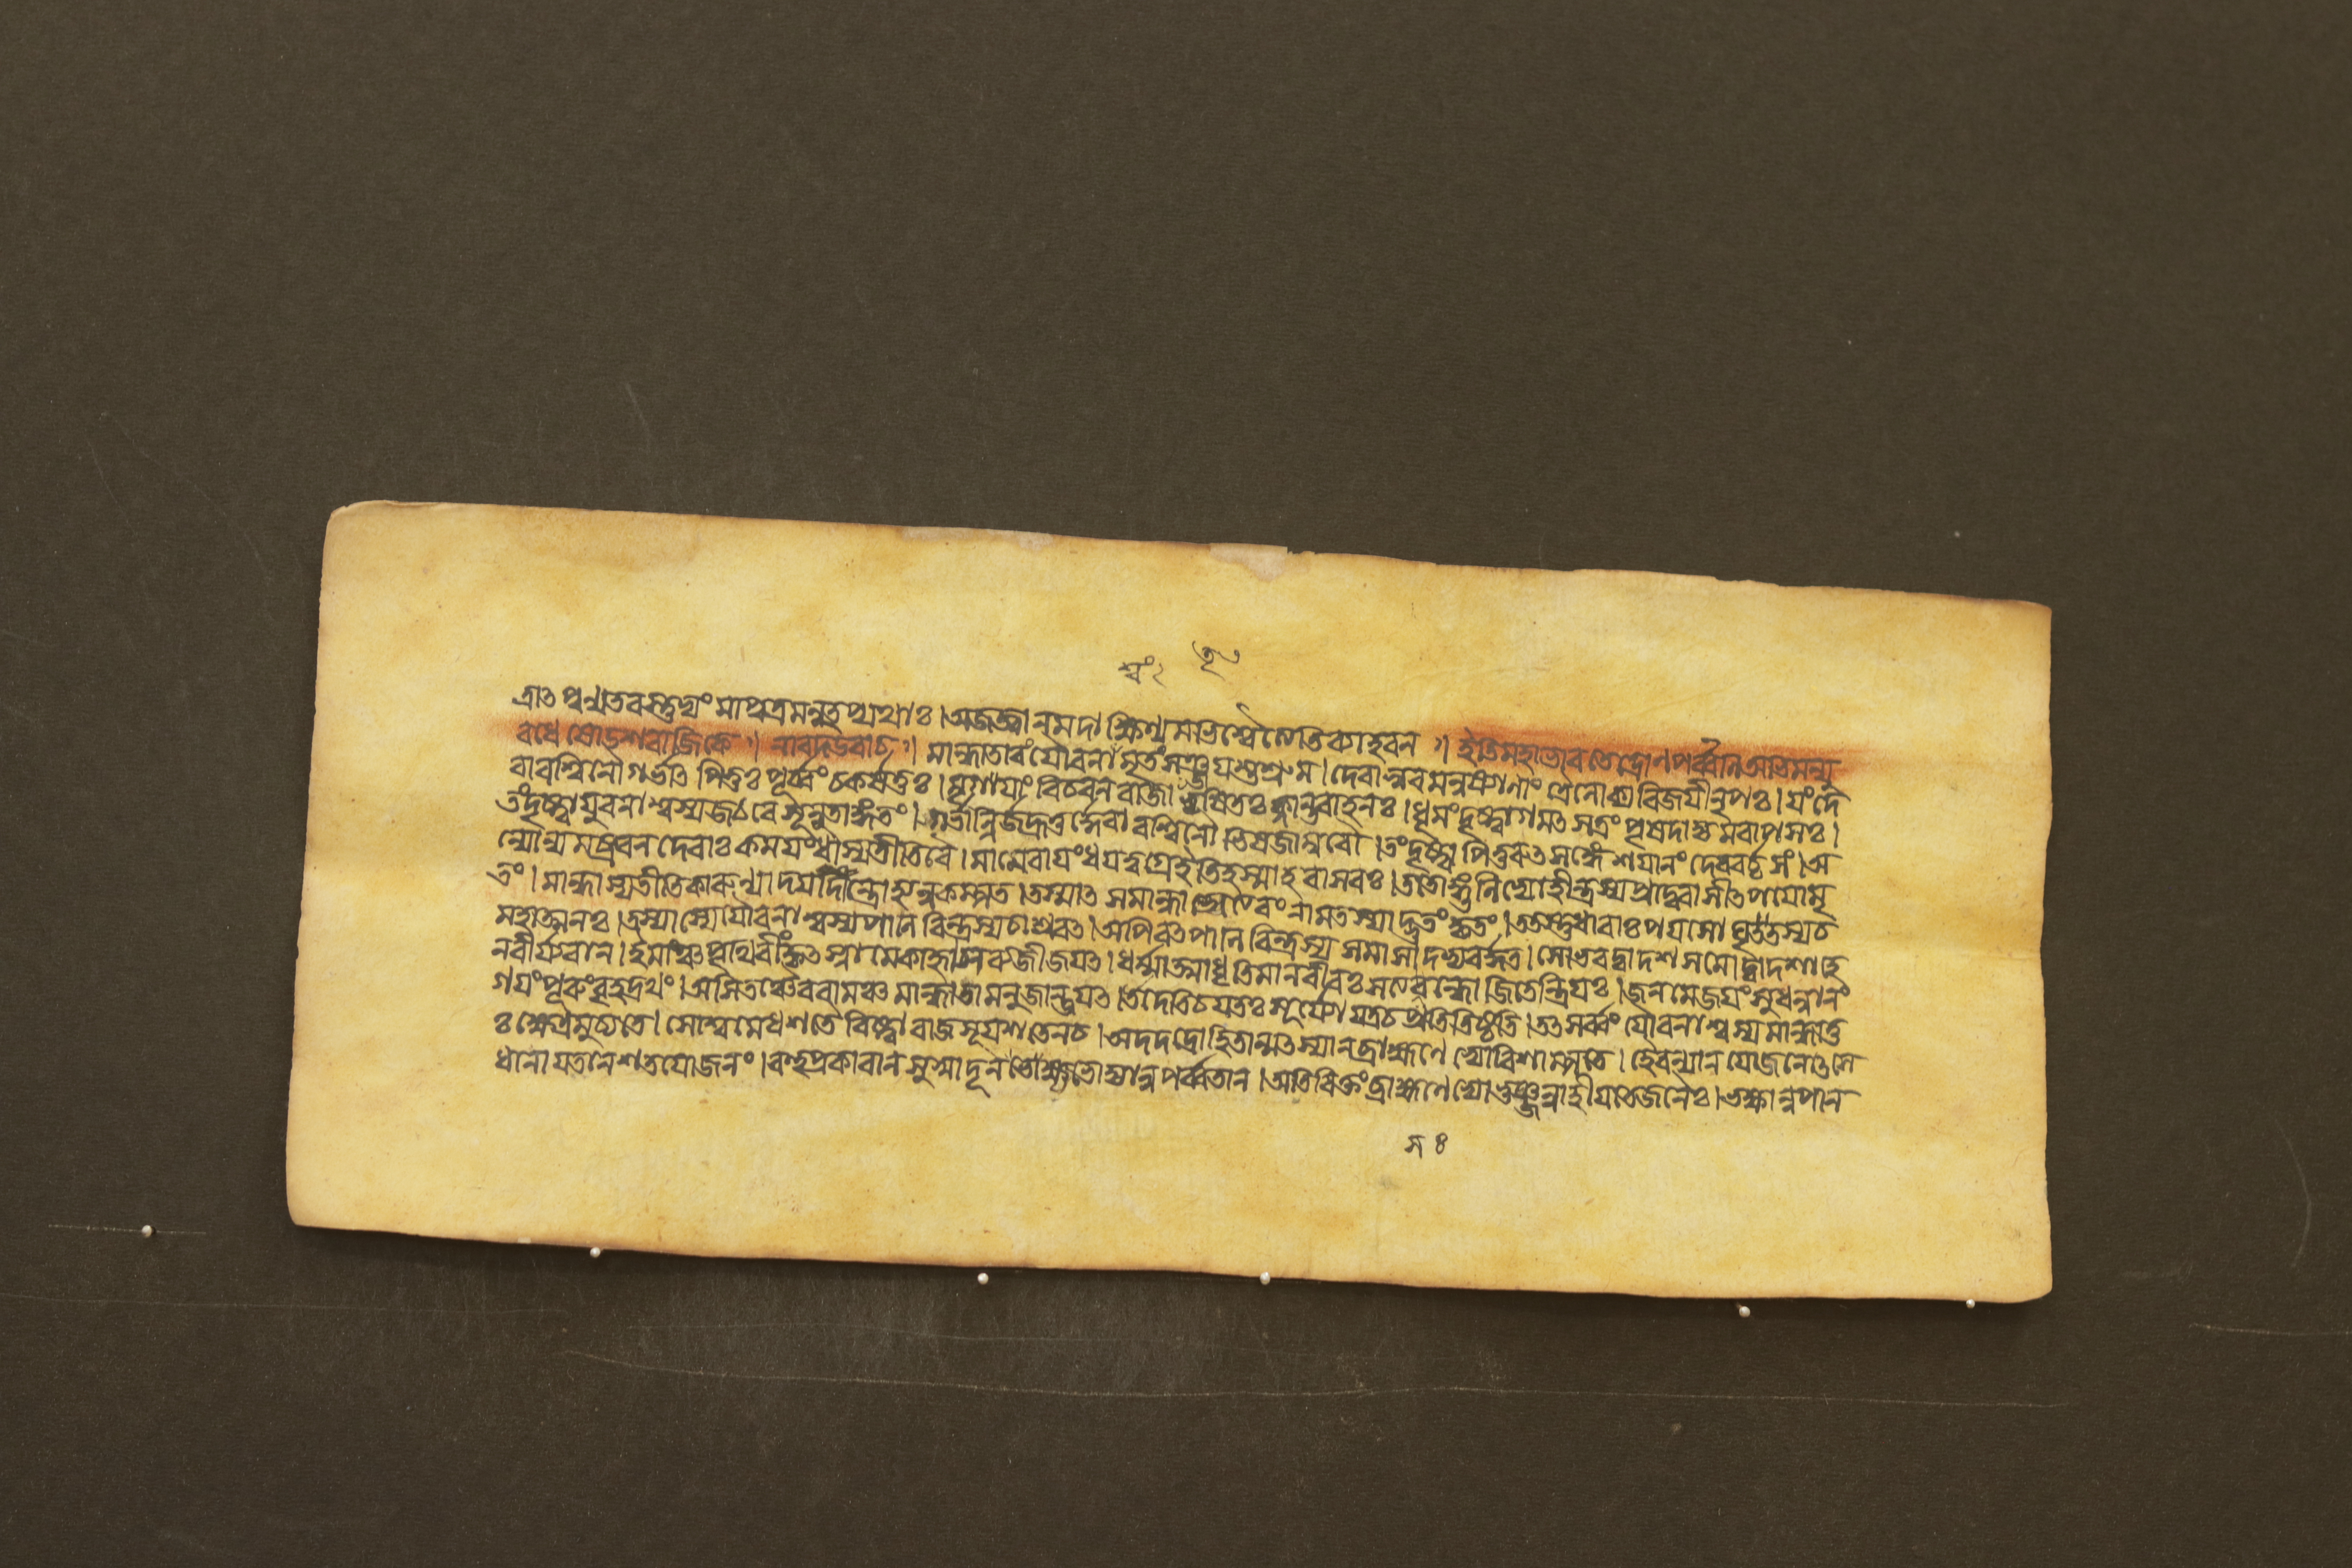 শ্বং২
ত্রাৎ পুণ্যতরস্তুভ্যং মাপুত্রমনুতপ্যথাঃ। অজজ্বানমদাক্ষিণ্যমভিশ্বৈত্যেতিব্যাহরন ॥ ইতিমহাভারতেদ্রোণপর্ব্বণিঅভিমন্যু
বধে ষোড়শরাজিকে ॥ নারদউবাচ ॥ মান্ধাতারং যৌবনা মৃতং সৃঞ্জয়শুশ্রুম। দেবাসুরমনুষ্যাণাং ত্রৈলোক্যবিজয়ীনৃপঃ। যং দে
বাবশ্বিনৌগর্ভাৎ পিতুঃ পূর্ব্বং চকর্ষতুঃ। মৃগয়াং বিচরনরাজা তৃষিতঃ ক্লান্তবাহনঃ। ধূমংদৃষ্ট্বাগমৎ সত্রং পৃষদাজ্যমবাপসঃ।
তংদৃষ্ট্বাযুবনাশ্বস্যজঠরে সূনুতাঙ্গতং। গর্ভান্নির্জহ্রতুর্দ্দেবাবশ্বিনৌ ভিষজাম্বরৌ। তংদৃষ্ট্বা পিতুরুৎসঙ্গেশয়ানং দেববর্চ্চসং। অ
ন্যোন্যমব্রুবন দেবাঃ কময়ংধাস্যতীতিবৈ। মামেবায়ংধয়ত্বগ্রেইতিহস্মাহ বাসবঃ। ততোঙ্গুলিভ্যোহীন্দ্রস্যপ্রাদুরাসীৎপয়োমৃ
তং। মান্ধাস্যতীতিকারুণ্যাদ্যদিন্দ্রোহ্যন্বকম্পত। তস্মাৎ সমান্ধাতেত্যেবং নামতস্যাদ্ভুতং কৃতং। ততস্তুধারাঃ পয়সো ঘৃতস্যচ
মহাত্মনঃ। তস্যাস্যেযৌবনাশ্বস্যপাণিরিন্দ্রস্যচাশ্রবৎ। অপিবৎপাণিমিন্দ্রস্য সমাসাদভ্যবর্দ্ধত। সোভবদ্দ্বাদশসমোদ্বাদশাহে
নবীর্য্যবান। ইমাঞ্চপৃথিবীংকৃৎস্নামেকাহ্নাসব্যজীজয়ৎ। ধর্ম্মাত্মাধৃতিমানবীরঃ সত্যসন্ধো জিতেন্দ্রিয়ঃ। জনমেজয়ং সুধন্বানং
গয়ংপূরুংবৃহদ্রথং। অসিতঞ্চৈবরামঞ্চ মান্ধাতামনুজোজয়ৎ। উদেতিচযতঃ সূর্য্যো যত্রচপ্রতিতিষ্ঠতি। তৎসর্ব্বং যৌবনাশ্বস্যমান্ধাতু
ঃ ক্ষেত্রমুচ্যতে। সোশ্বমেধশতৈরিষ্ট্বা রাজসূয়শতেনচ। অদদদ্রোহিতান্মৎস্যান ব্রাহ্মণেভ্যোবিশাম্পতে। হৈরণ্যান যোজনোৎসে
ধানায়তানশতযোজনং। বহুপ্রকারানসুস্বাদূন ভোজ্যান্নপর্ব্বতান। অতিরিক্তং ব্রাহ্মণেভ্যোভুঞ্জন্নাহীয়তেজনৈঃ। ভক্ষান্নপান
স ৪